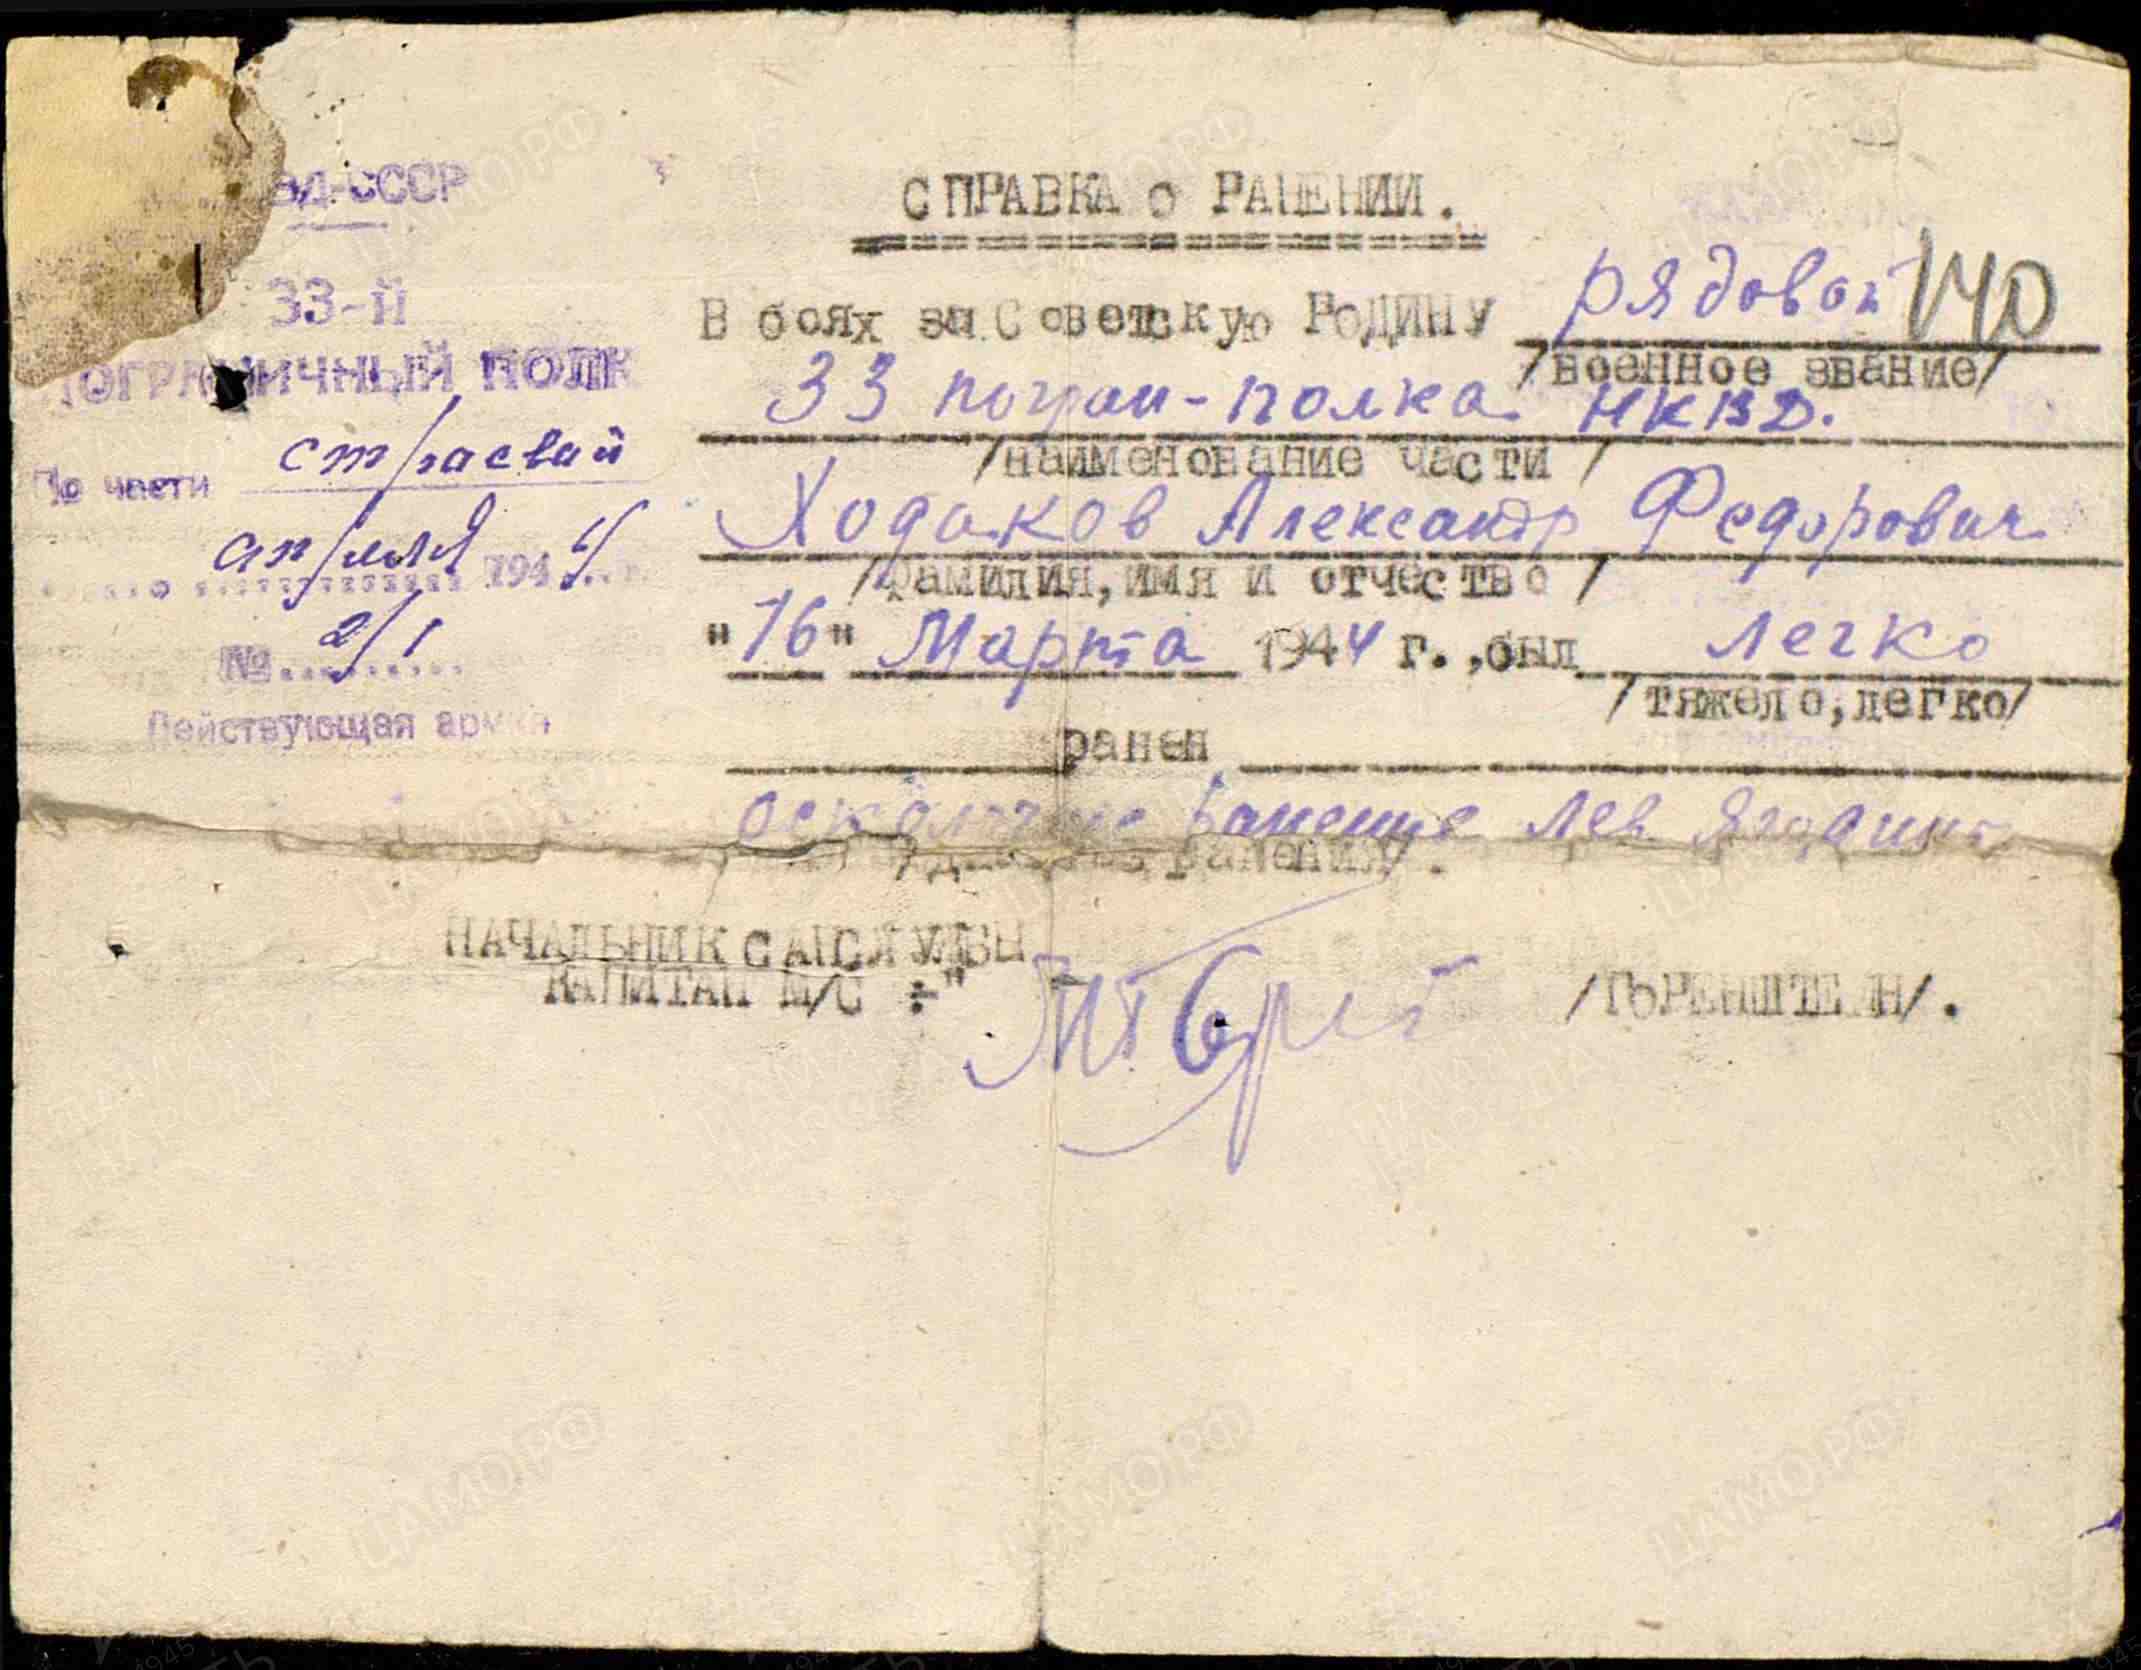 СССР
33-й
ПОГРАНИЧНЫЙ ПОЛК
По части строевой
апреля 1944 г.
№ 2/1
Действующая армия
СПРАВКА о РАНЕНИИ.
В боях за Советскую РОДИНУ рядовой 140
/военное звание/
33 погран-полка НКВД.
/наименование части/
Ходаков Александр Федорович
/фамилия, имя и отчество/
"16" Марта 1944 г., был легко
/тяжело, легко/
ранен
осколочное ранение лев. ягодицы
ранения/.
НАЧАЛЬНИК САНСЛУЖБЫ
КАПИТАН М/С :-"
/ГОРЕНШТЕЙН/.